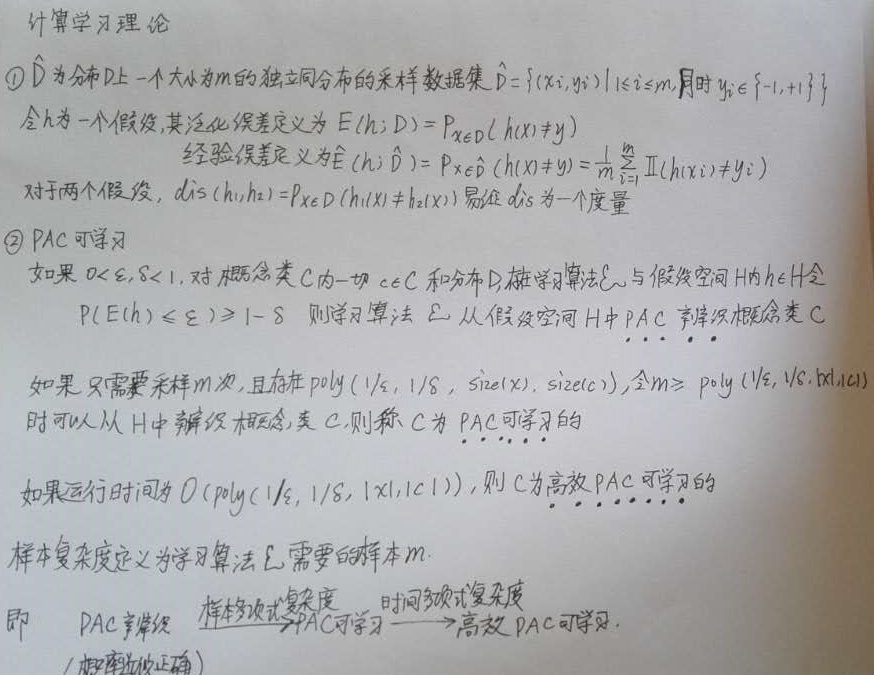 计算学习理论
① D̂为分布D上一个大小为m的独立同分布的采样数据集 D̂={(xi,yi)|1≤i≤m,同时yi∈{-1,+1}}
令h为一个假设,其泛化误差定义为 E(h;D)=P_{x∈D}(h(x)≠y)
经验误差定义为Ê(h;D̂)=P_{x∈D̂}(h(x)≠y)=1/m ∑_{i=1}^{m} Ⅱ(h(xi)≠yi)
对于两个假设, dis(h1,h2)=P_{x∈D}(h1(x)≠h2(x)) 易证 dis 为一个度量
② PAC可学习
如果 0<ε,δ<1,对概念类C内一切 c∈C 和分布D,存在学习算法ξ 与假设空间H内h∈H令
P(E(h)≤ε)≥1-δ 则学习算法 ξ 从假设空间H中PAC辨识概念类C
如果只需要采样m次,且存在poly(1/ε,1/δ,size(x),size(c)),令m≥poly(1/ε,1/δ,|x|,|c|)
时可以从H中辨识概念类C,则称C为PAC可学习的
如果运行时间为O(poly(1/ε,1/δ,|x|,|c|)),则C为高效PAC可学习的
样本复杂度定义为学习算法ξ需要的样本m.
即 PAC辨识 样本多项式复杂度→PAC可学习 时间多项式复杂度→高效PAC可学习.
(概率近似正确)